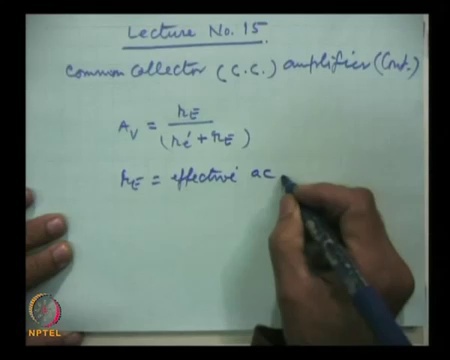 Lecture No. 15.
Common Collector (C.C.) amplifier (Cont.)
A_V = r_E / (r_e' + r_E)
r_E = effective ac
NPTEL